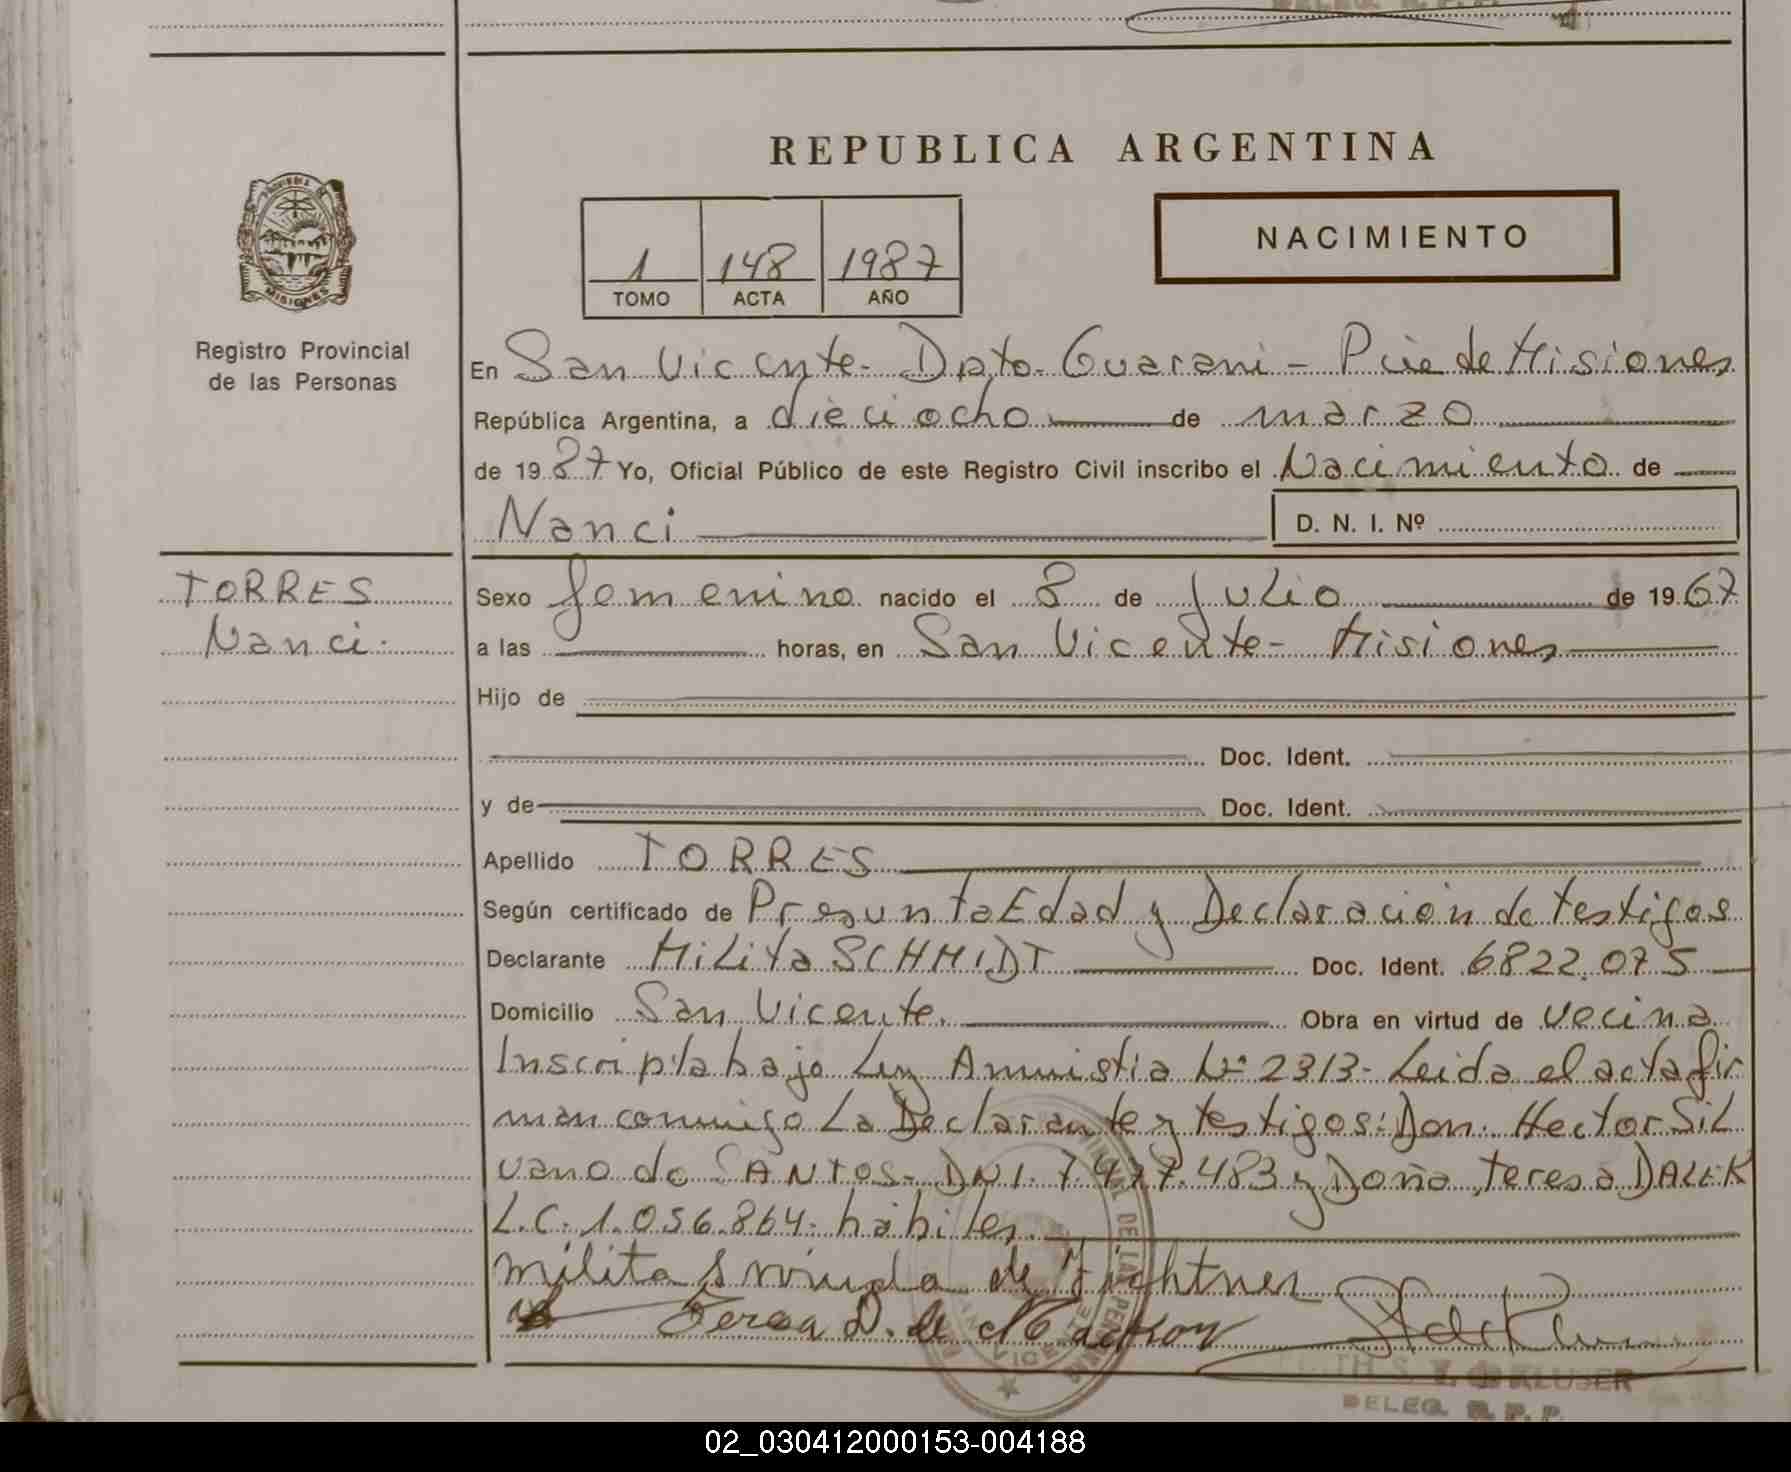 REPUBLICA ARGENTINA
1 148 1987
TOMO ACTA AÑO
NACIMIENTO
MISIONES
Registro Provincial
de las Personas
En San Vicente - Dpto. Guarani - Pcia de Misiones
República Argentina, a dieciocho de marzo
de 1987 Yo, Oficial Público de este Registro Civil inscribo el Nacimiento de
Nanci D. N. I. Nº
TORRES
Nanci.
Sexo femenino nacido el 8 de Julio de 1967
a las horas, en San Vicente - Misiones
Hijo de
Doc. Ident.
y de Doc. Ident.
Apellido TORRES
Según certificado de Presunta Edad y Declaración de testigos
Declarante Milita SCHMIDT Doc. Ident. 6822.075
Domicilio San Vicente. Obra en virtud de vecina
Inscripta bajo Ley Amnistia Nº 2313 - Leida el acta fir
man conmigo La Declarante y testigos: Don. Hector Sil
vano do SANTOS - DNI. 7.477.483 y Doña Teresa DALEK
L.C. 1.056.864 - hábiles.
Milita S viuda de
Teresa D. de
KLUSER
DELEG. R. P. P.
02_030412000153-004188